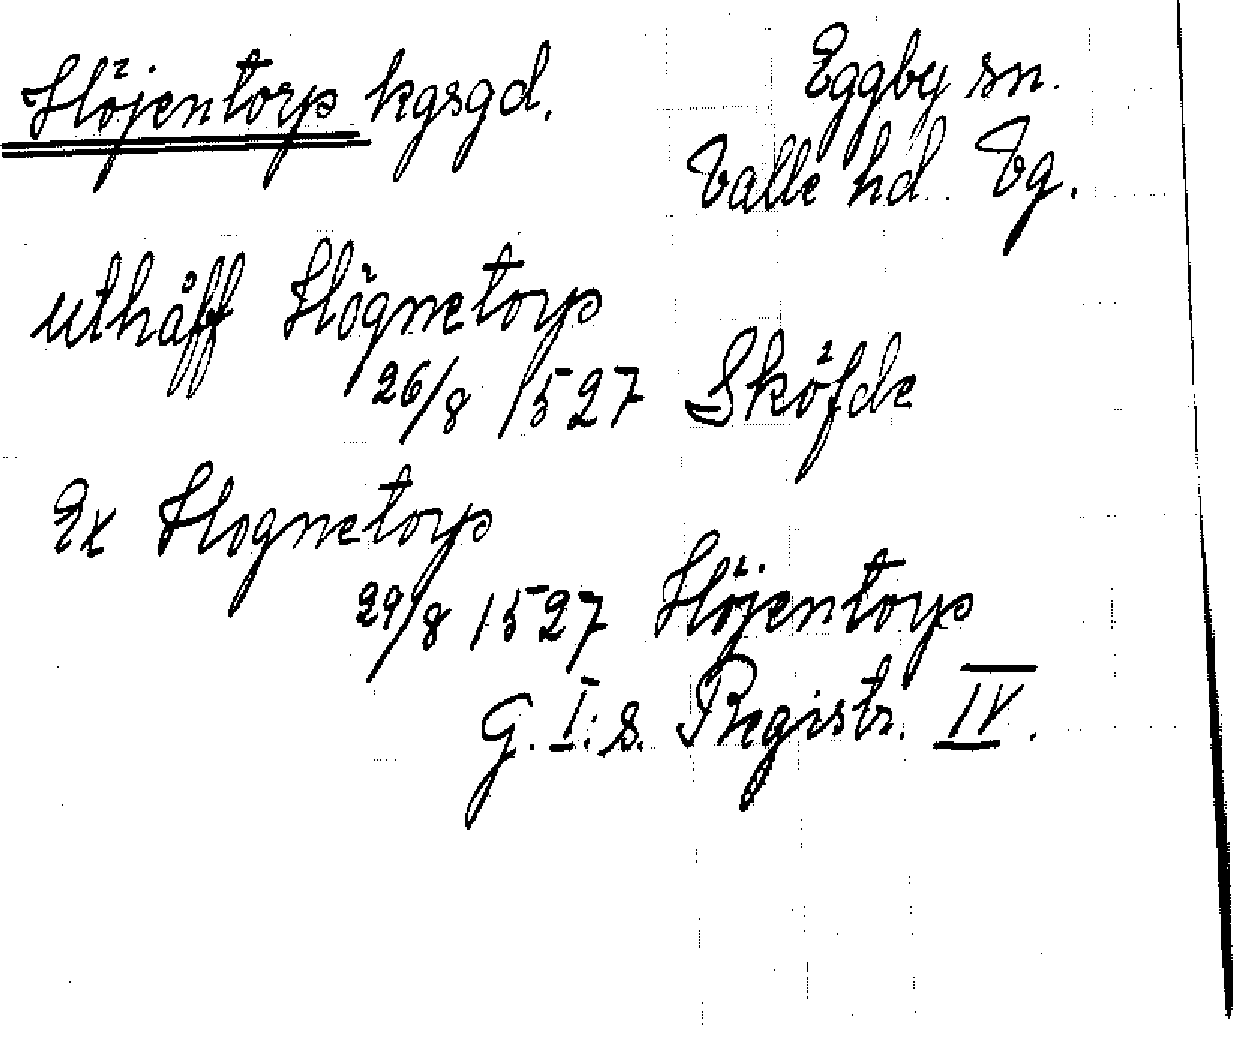 Höjentorp kgsgd.
Eggby sn.
Valle hd. Vg.
uthåff Högnetorp
26/8 1527 Sköfde
Ex Hognetorp
29/8 1527 Höjentorp
G. I:s. Registr. IV.